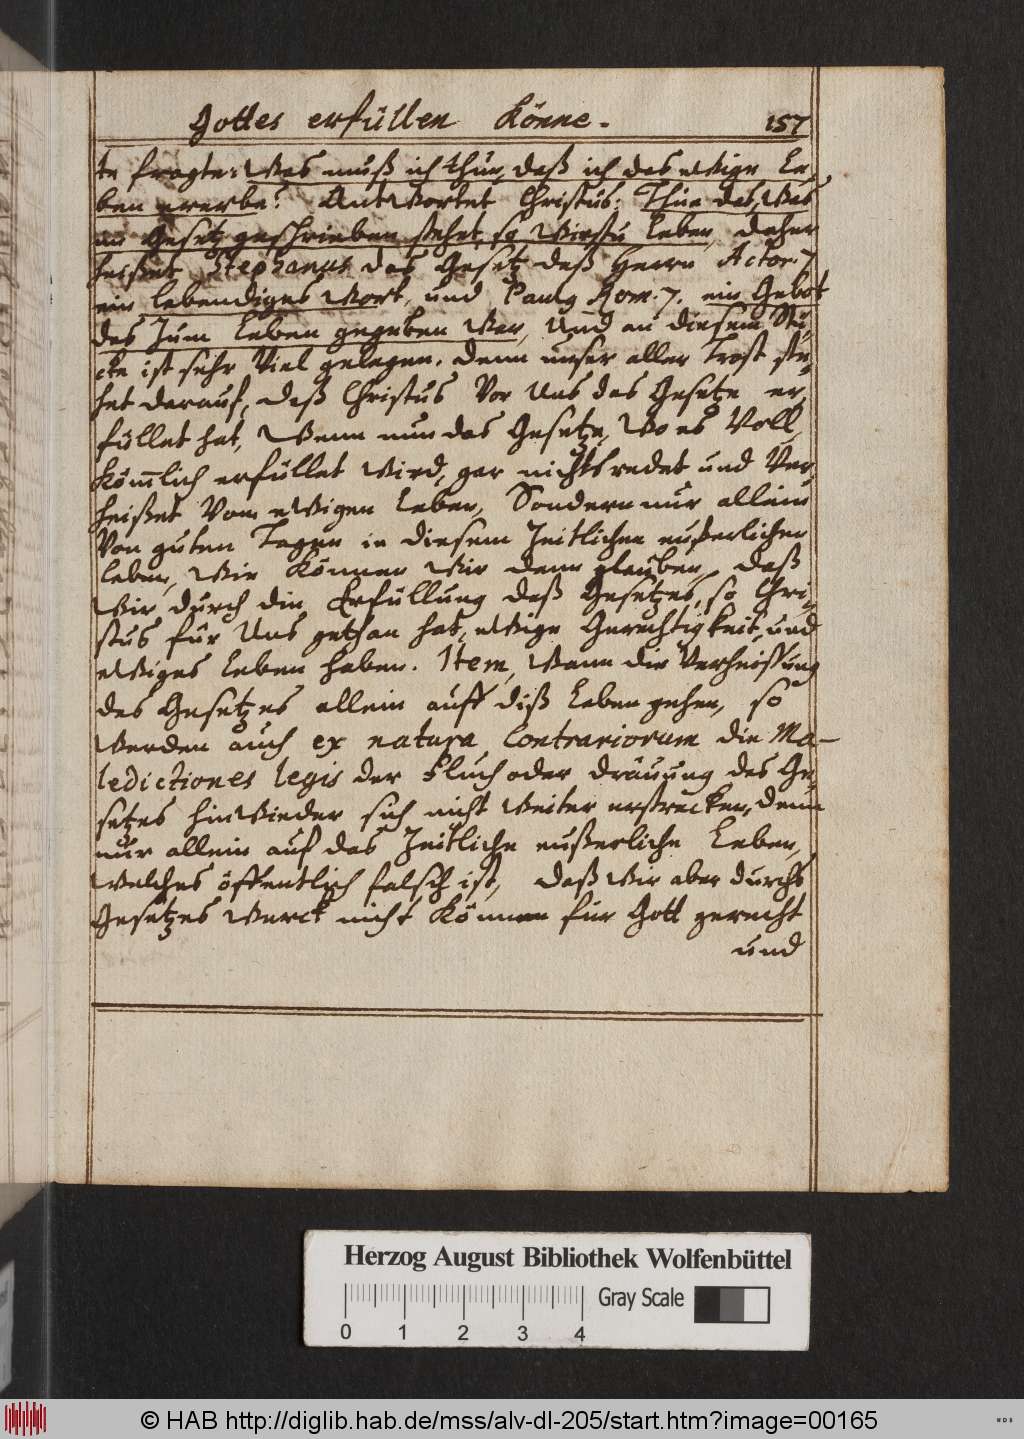 Gottes erfüllen Könne. 157
te fragte: Was muß ich thun, daß ich das ewige Le,
ben ererbe? Antwortet Christus: Thue das, Was
im Gesetz geschrieben stehet, so Wirstu leben, daher
heißet Stephanus das Gesetz deß Herrn Actor. 7
ein lebendiges Wort, und Paulg Rom. 7. ein Gebot
das Zum Leben gegeben War, Und an diesem Stü,
cke ist sehr Viel gelegen. denn unser aller Trost ste,
het darauf, daß Christus Vor Uns das Gesetze er,
füllet hat, Wenn nun das Gesetze, Wo es Voll,
kömlich erfüllet Wird, gar nichts redet und Ver,
heißet Vom ewigen Leben, Sondern nur allein
Von guten Tagen in diesem Zeitlichen eußerlichen
leben, Wie Können Wir denn glauben, daß
Wir durch die Erfüllung deß Gesetzes, so Chri,
stus für Uns gethan hat, ewige Gerechtigkeit, und
ewiges leben haben. Item, Wann die Verheissung
des Gesetzes allein auff diß Leben gehen, so
Werden auch ex natura Contrariorum die Ma-
ledictiones legis der Fluch oder dräuung des Ge,
setzes hinwieder sich nicht Weiter erstrecken, denn
nur allein auf das Zeitliche eußerliche Leben,
Welches öffentlich falsch ist, daß Wir aber durchs
Gesetzes Werck nicht Können für Gott gerecht
und
Herzog August Bibliothek Wolfenbüttel
Gray Scale
0 1 2 3 4
© HAB http://diglib.hab.de/mss/alv-dl-205/start.htm?image=00165